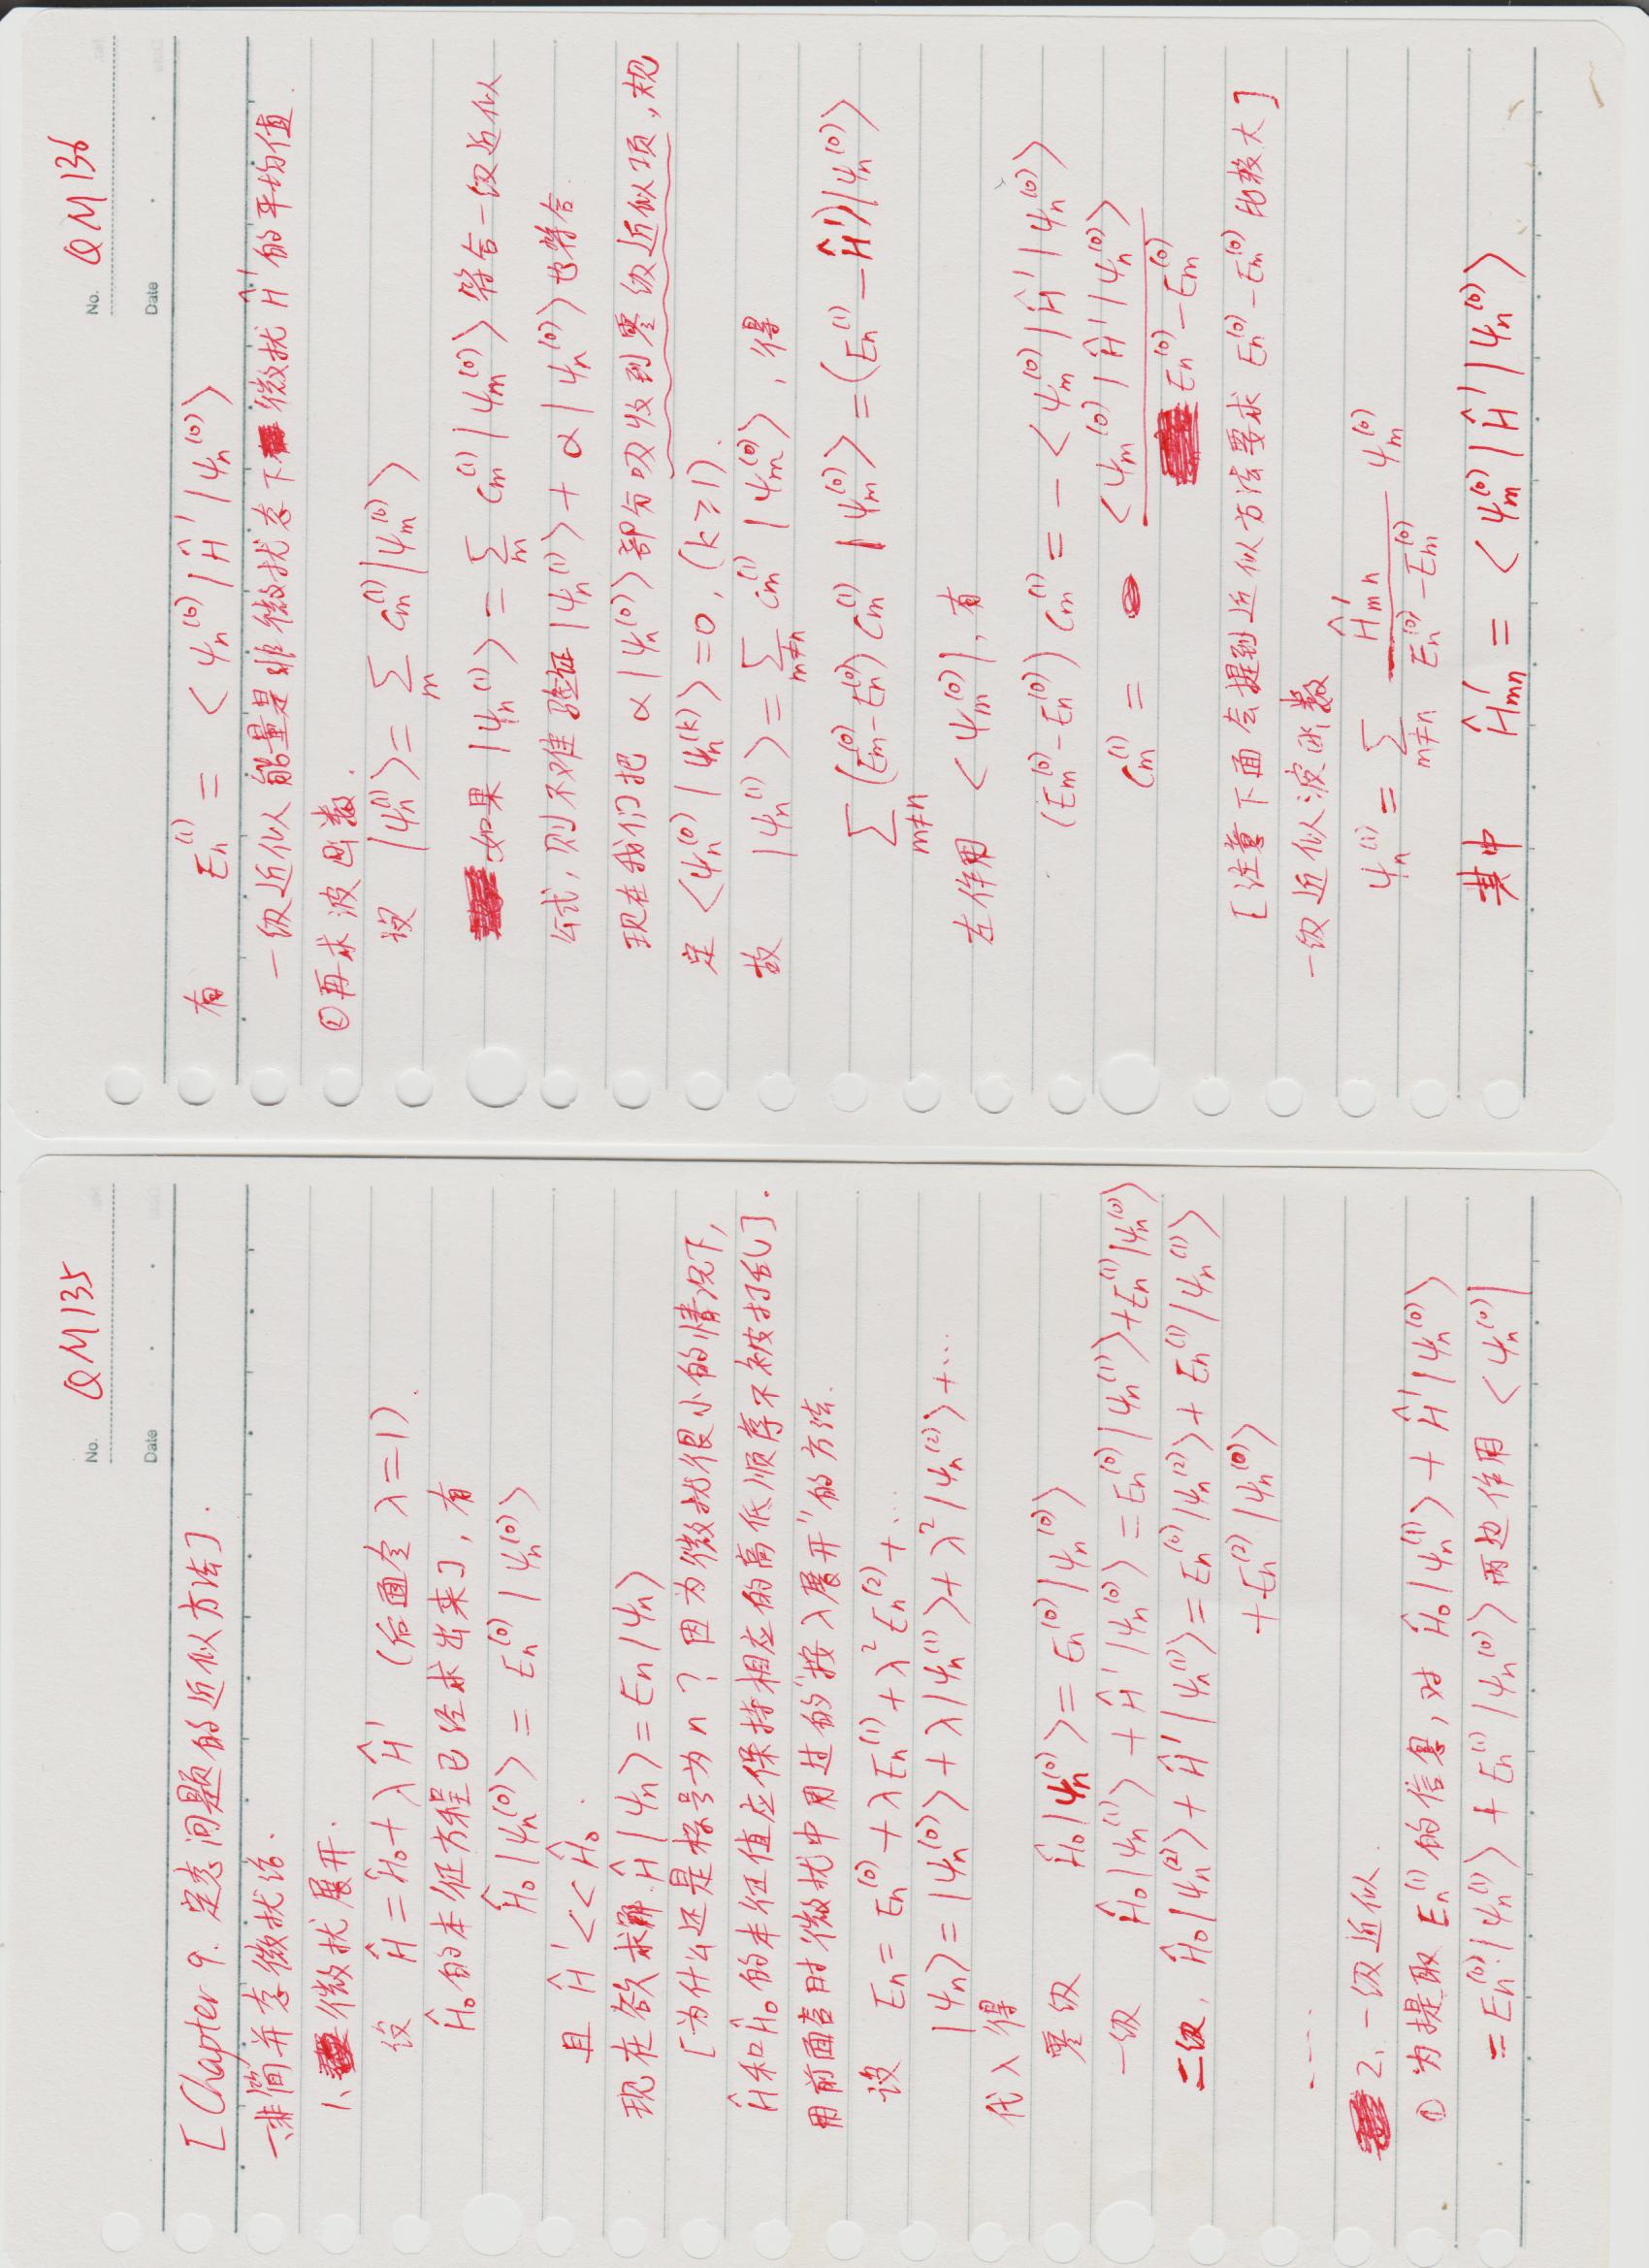 No. QM135
Date
[Chapter 9. 定态问题的近似方法].
一、非简并态微扰论.
1、微扰展开.
设 Ĥ = Ĥ₀ + λĤ' (后面令 λ=1).
Ĥ₀的本征方程已经求出来了, 有
Ĥ₀|ψn^(0)〉 = En^(0)|ψn^(0)〉
且 Ĥ' << Ĥ₀.
现在欲求解 Ĥ|ψn〉= En|ψn〉
[为什么还是标号为n? 因为微扰很小的情况下,
Ĥ和Ĥ₀的本征值应保持相应的高低顺序不被打乱].
用前面含时微扰中用过的"按λ展开"的方法.
设 En = En^(0) + λEn^(1) + λ²En^(2) + …
|ψn〉= |ψn^(0)〉+ λ|ψn^(1)〉+ λ²|ψn^(2)〉+ …
代入得
零级 Ĥ₀|ψn^(0)〉= En^(0)|ψn^(0)〉
一级 Ĥ₀|ψn^(1)〉+ Ĥ'|ψn^(0)〉= En^(0)|ψn^(1)〉+ En^(1)|ψn^(0)〉
二级. Ĥ₀|ψn^(2)〉+ Ĥ'|ψn^(1)〉= En^(0)|ψn^(2)〉+ En^(1)|ψn^(1)〉
+ En^(2)|ψn^(0)〉
....
2、一级近似.
① 为提取 En^(1) 的信息, 对 Ĥ₀|ψn^(1)〉+ Ĥ'|ψn^(0)〉
= En^(0)|ψn^(1)〉+ En^(1)|ψn^(0)〉两边作用〈ψn^(0)|
No. QM136
Date
有 En^(1) = 〈ψn^(0)|Ĥ'|ψn^(0)〉
一级近似能量是非微扰态下微扰Ĥ'的平均值.
②再求波函数.
设 |ψn^(1)〉= Σ_m Cm^(1)|ψm^(0)〉
如果 |ψn^(1)〉= Σ_m Cm^(1)|ψm^(0)〉符合一级近似
公式, 则不难验证 |ψn^(1)〉+ α|ψn^(0)〉也符合.
现在我们把 α|ψn^(0)〉部分吸收到零级近似项, 规
定〈ψn^(0)|ψn^(k)〉=0, (k≥1).
故 |ψn^(1)〉= Σ_{m≠n} Cm^(1)|ψm^(0)〉, 得
Σ_{m≠n} (Em^(0) − En^(0)) Cm^(1)|ψm^(0)〉= (En^(1) − Ĥ')|ψn^(0)〉
左作用〈ψm^(0)|, 有
(Em^(0) − En^(0)) Cm^(1) = −〈ψm^(0)|Ĥ'|ψn^(0)〉
Cm^(1) = 〈ψm^(0)|Ĥ'|ψn^(0)〉 / (En^(0) − Em^(0))
[注意下面会提到近似方法要求 En^(0) − Em^(0) 比较大]
一级近似波函数
ψn^(1) = Σ_{m≠n} Ĥ'mn / (En^(0) − Em^(0)) ψm^(0)
其中 Ĥ'mn = 〈ψm^(0)|Ĥ'|ψn^(0)〉